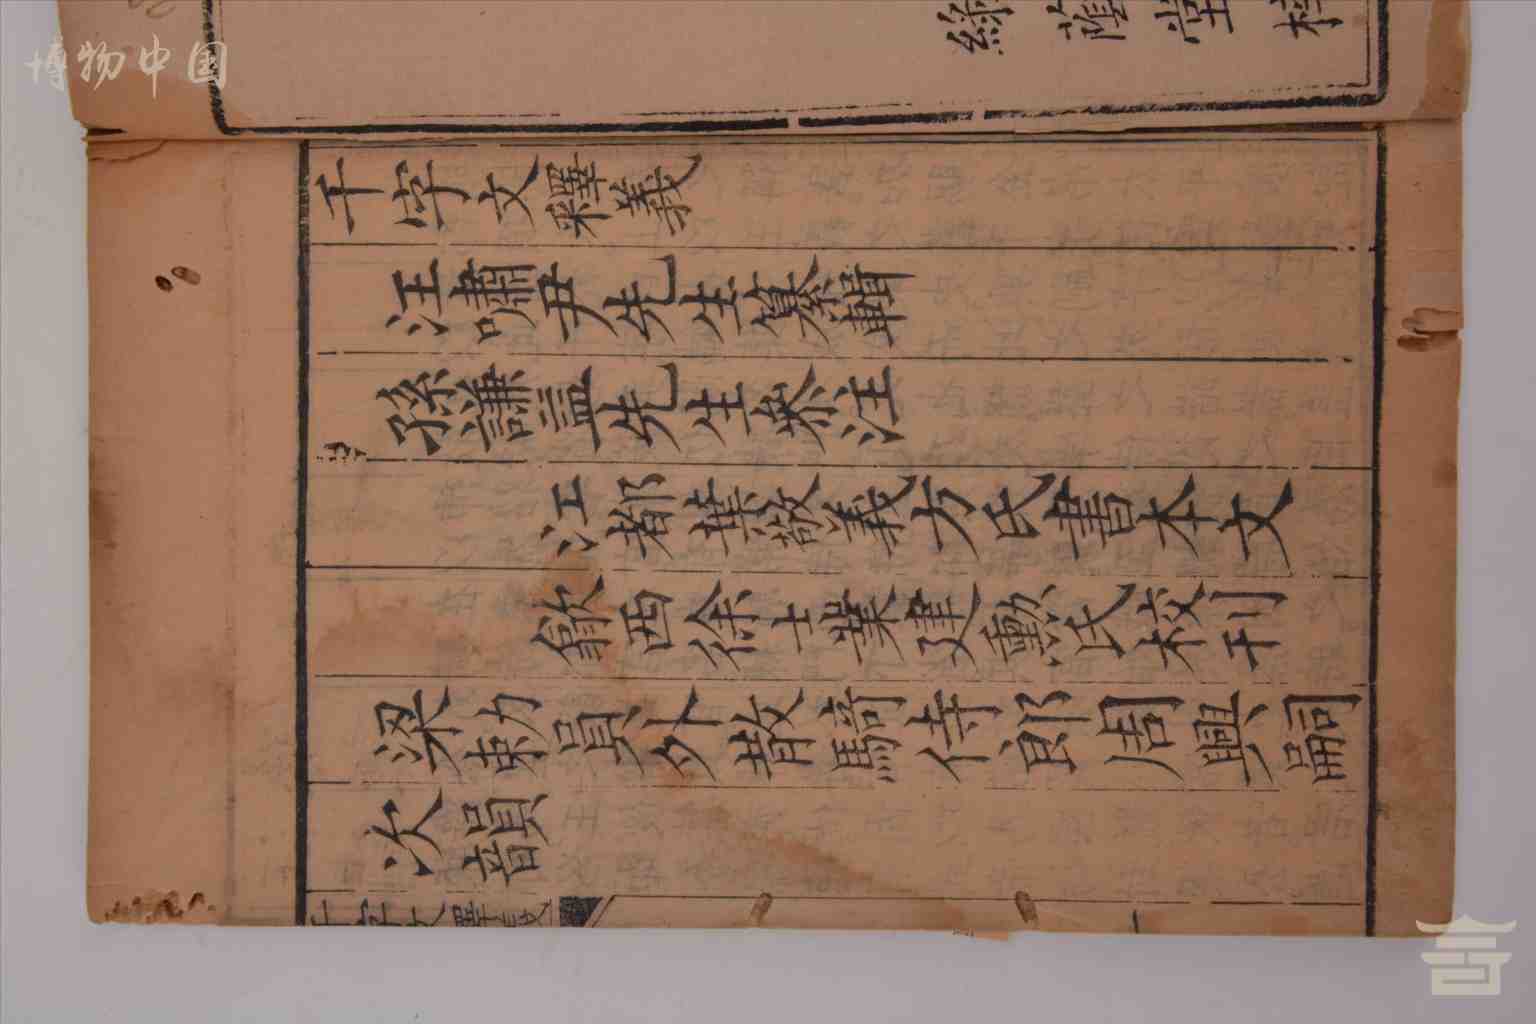 千字文釋義
汪嘯尹先生纂輯
孫謙益先生參注
江都葉敬義方氏書本文
歙西徐士業建勳氏校刊
梁勅員外散騎侍郎周興嗣
次韻
千字文釋義
博物中国